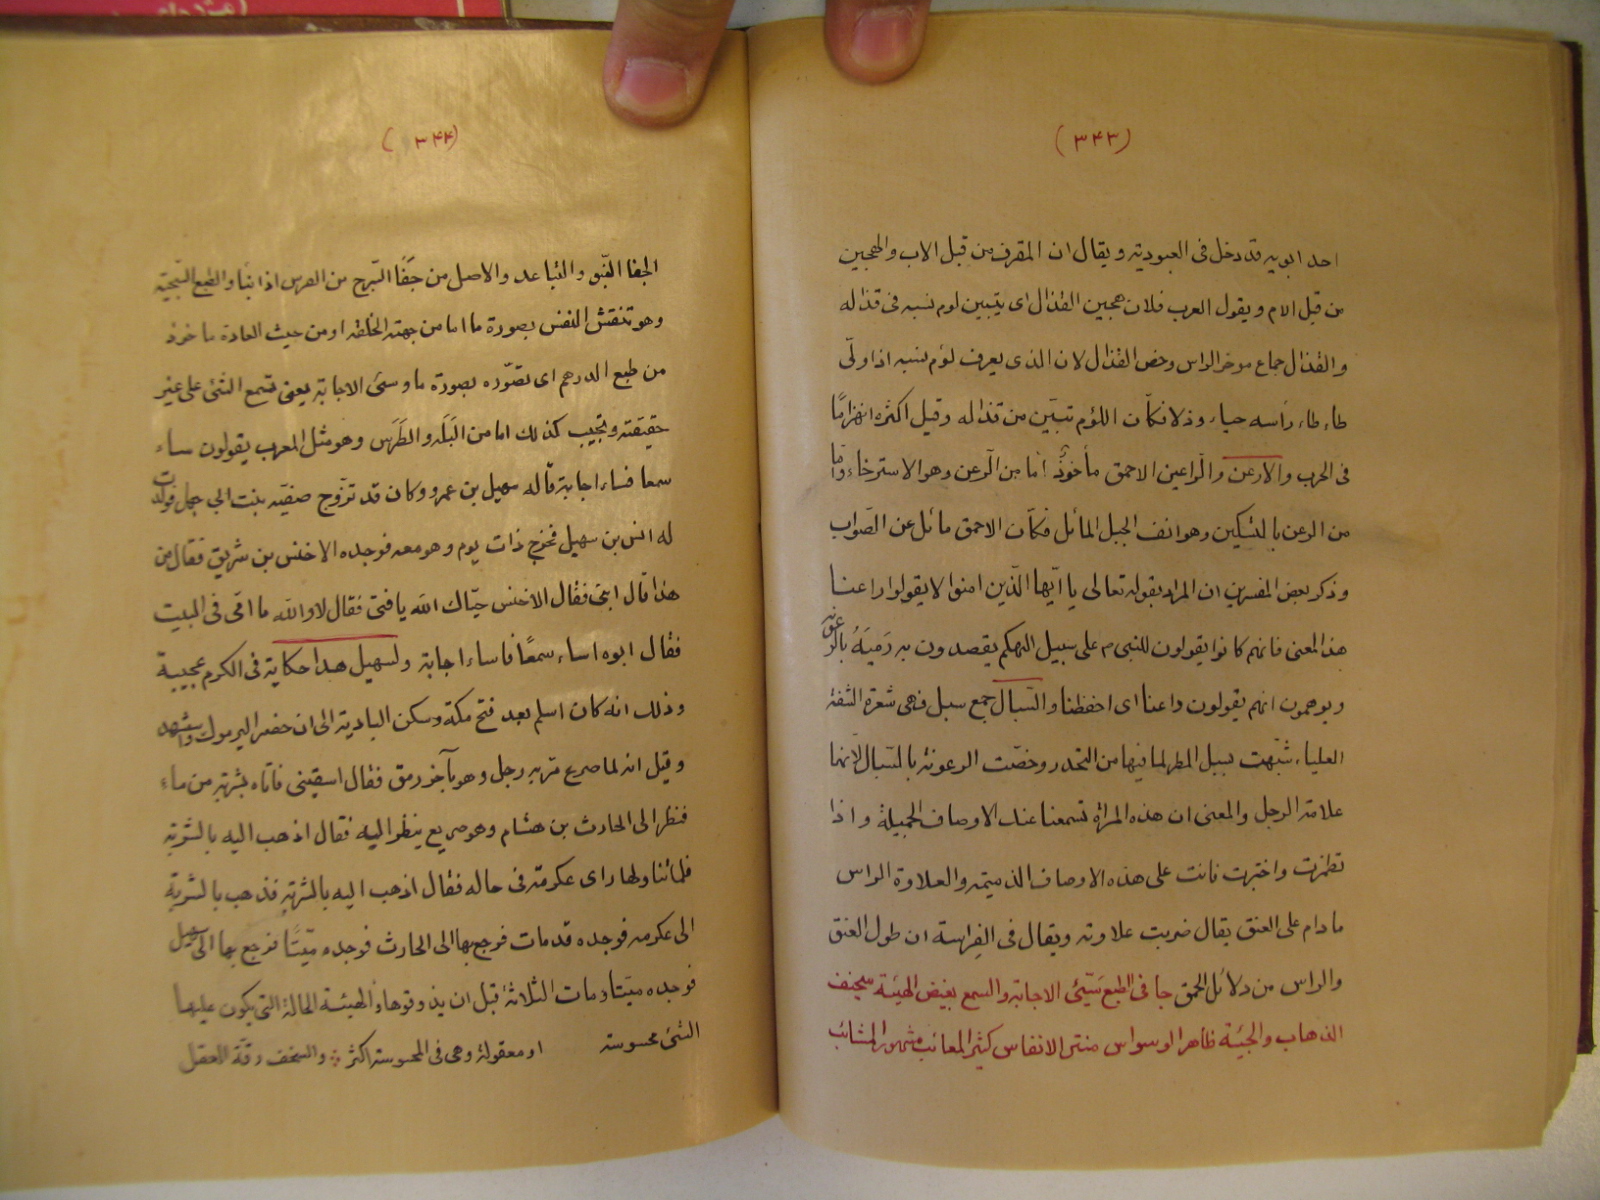 (۳۴۳)
احد ابويه قد دخل فى العبودية ويقال ان المقرف من قبل الاب والهجين
من قبل الام ويقول العرب فلان هجين القذال اى يتبين لوم نسبه فى قذاله
والقذال جماع موخر الراس وخص القذال لان الذى يعرف لؤم نسبه اذا ولّى
طاء طاء راسه حياء وذلا فكاٴن اللؤم تبيّن من قذاله وقيل اكثره انهزامًا
فى الحرب والارعن والراعين الاحمق مأخوذٌ امّا من الرعن وهو الاسترخاء واما
من الرعن بالتسكين وهو انف الجبل المائل فكاٴن الاحمق مائل عن الصّواب
وذكر بعض المفسرين ان المراد بقوله تعالى يا ايّها الّذين امنوا لا يقولوا راعنا
هذا المعنى فانهم كانوا يقولون للنبى م على سبيل التهكم يقصدون به رَميَهُ بالرعونة
ويوهمون انهم يقولون راعنا اى احفظنا والسّبال جمع سبل فهى شعرة الشفة
العلياء شبّهت بسبل المطر لما فيها من التحدر وخصّت الرعونة بالسّبال لانها
علامة الرجل والمعنى ان هذه المراة تسمعنا عنك الاوصاف الجميلة واذا
نظرت واختبرت فانت على هذه الاوصاف الذميمة والعلاوة الراس
ما دام على العنق يقال ضربت علاوته ويقال فى الفِراسة ان طول العنق
والراس من دلائل الحمق جافى الطبع سَيّئ الاجابة والسمع بغيض الهيئة سخيف
الذهاب والجيئة ظاهر الوسواس منتن الانفاس كثير المعائب مشهور المثالب
(۳۴۴)
الجفا النّبو والتباعد والاصل من جَفَا السّرج من الفرس اذا نبا والطبع السّجيّة
وهو تنقش النفس بصورة ما اما من جهة الخلقة او من حيث العادة ماخوذ
من طبع الدرهم اى تصوّره بصورة ما وسئ الاجابة يعنى تسمع الشئ على غير
حقيقته وتجيب كذلك اما من البَلَه والطَرَس وهو مثل العرب يقولون ساء
سمعا فساء اجابة قاله سهيل بن عمرو وكان قد تزوج صفيّه بنت ابى جهل فولدت
له انس بن سهيل فخرج ذات يوم وهو معه فوجده الاخنس بن شريق فقال من
هذا قال ابنى فقال الاخنس حيّاك الله يا فتى فقال لا والله ما امّى فى البيت
فقال ابوه اساء سمعًا فاساء اجابة ولسهيل هذا حكاية فى الكرم عجيبة
وذلك انه كان اسلم بعد فتح مكة وسكن البادية الى ان حضر اليرموك واستشهد
وقيل انه لما صرع مرّ به رجل وهو بآخر رمق فقال اسقينى فاتاه بشربة من ماء
فنظر الى الحارث بن هشام وهو صريع ينظر اليه فقال اذهب اليه بالشربة
فلما تناولها راى عكرمة فى حاله فقال اذهب اليه بالشربة فذهب بالشربة
الى عكرمه فوجده قد مات فرجع بها الى الحارث فوجده ميّتًا فرجع بها الى سهيل
فوجده ميتا ومات الثلاثة قبل ان يذوقوها والهيئة الحالة التى يكون عليها
الشئ محسوسته او معقولة وهى فى المحسوسة اكثر والسخف رقّة العقل